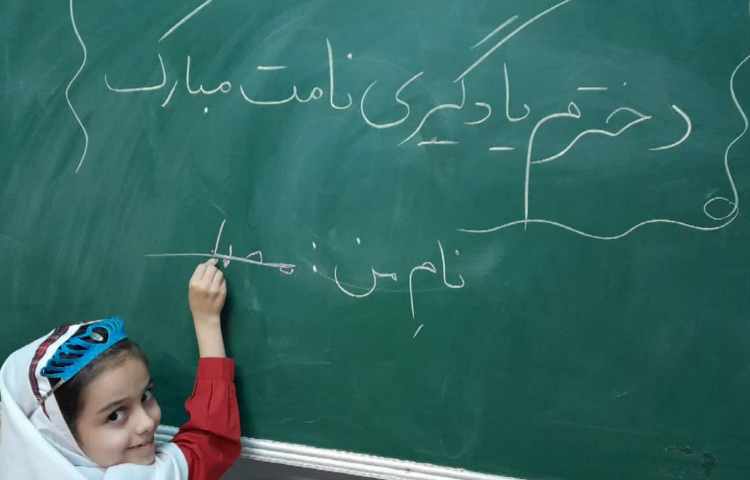 دخترم یادگیری نامت مبارک
نامِ من :